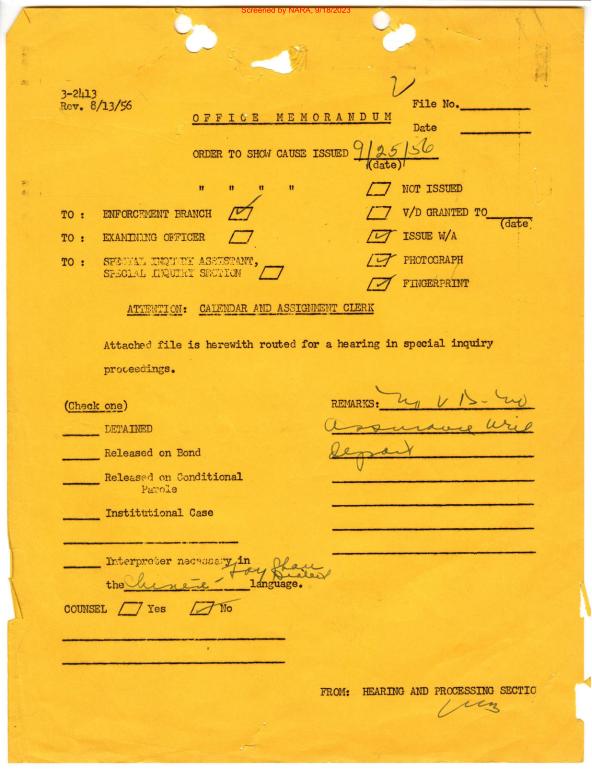 Screened by NARA, 9/18/2023
3-2413
Rev. 8/13/56
OFFICE MEMORANDUM
File No.
Date
ORDER TO SHOW CAUSE ISSUED 9/25/56
(date)
" " " " NOT ISSUED
TO : ENFORCEMENT BRANCH
V/D GRANTED TO
(date
TO : EXAMINING OFFICER
ISSUE W/A
TO : SPECIAL INQUIRY ASSISTANT,
SPECIAL INQUIRY SECTION
PHOTOGRAPH
FINGERPRINT
ATTENTION: CALENDAR AND ASSIGNMENT CLERK
Attached file is herewith routed for a hearing in special inquiry
proceedings.
(Check one)
DETAINED
Released on Bond
Released on Conditional
Parole
Institutional Case
Interpreter necessary in
the Chinese - Toy Shan Dialect language.
COUNSEL Yes No
REMARKS: No V D - No
assurance will
depart
FROM: HEARING AND PROCESSING SECTIO